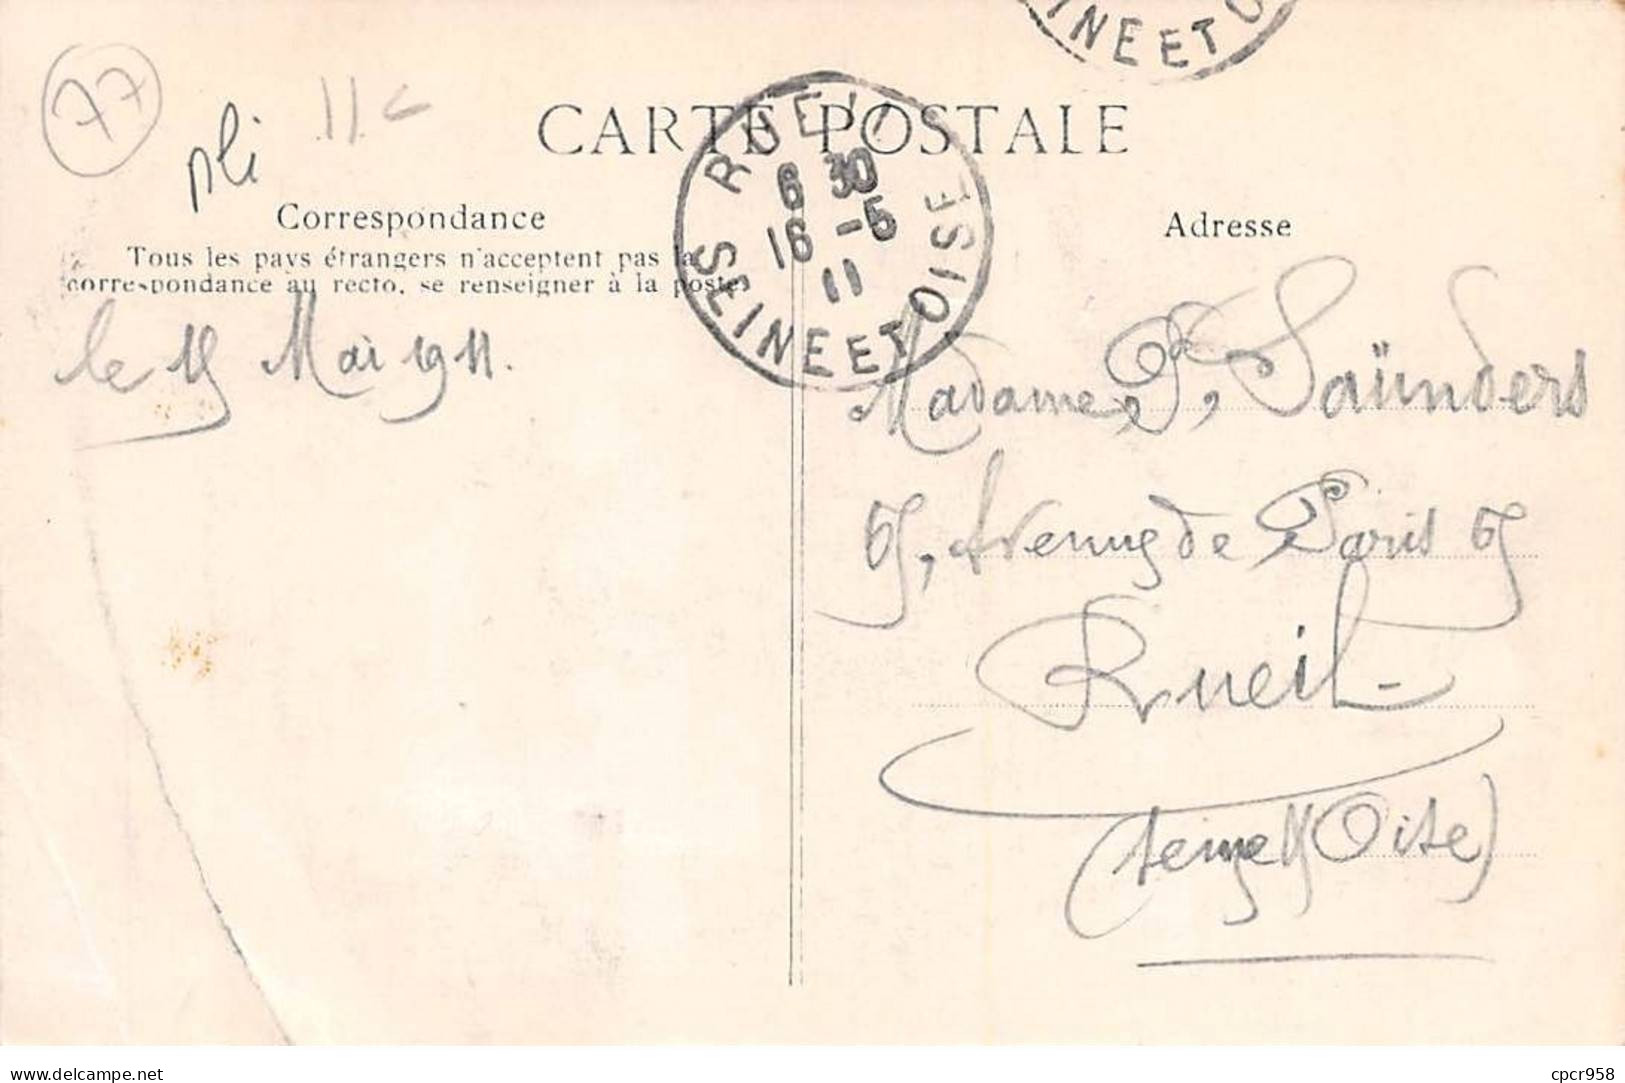 INE ET O
77
pli
11 c
CARTE POSTALE
RUEIL
6 30
16 -5
11
SEINE ET OISE
Correspondance
Tous les pays étrangers n'acceptent pas la
correspondance au recto, se renseigner à la poste
Adresse
le 15 Mai 1911.
Madame P. Saünders
65, Avenue de Paris 65
Rueil
(Seine & Oise)
www.delcampe.net
cpcr958